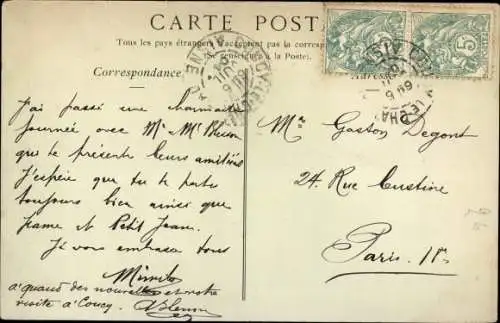 CARTE POSTALE
Tous les pays étrangers n'acceptent pas la correspondance
(Se renseigner à la Poste).
Correspondance
Adresse
5
5
J'ai passé une charmante
journée avec Mr Mme
que te présente leurs amitiés
J'espère que tu te portes
toujours bien ainsi que
et Petit Jean.
Je vous embrasse tous
a quand des nouvelles et votre
visite a Coucy
Mr Gaston Degont
24 Rue Custine
Paris